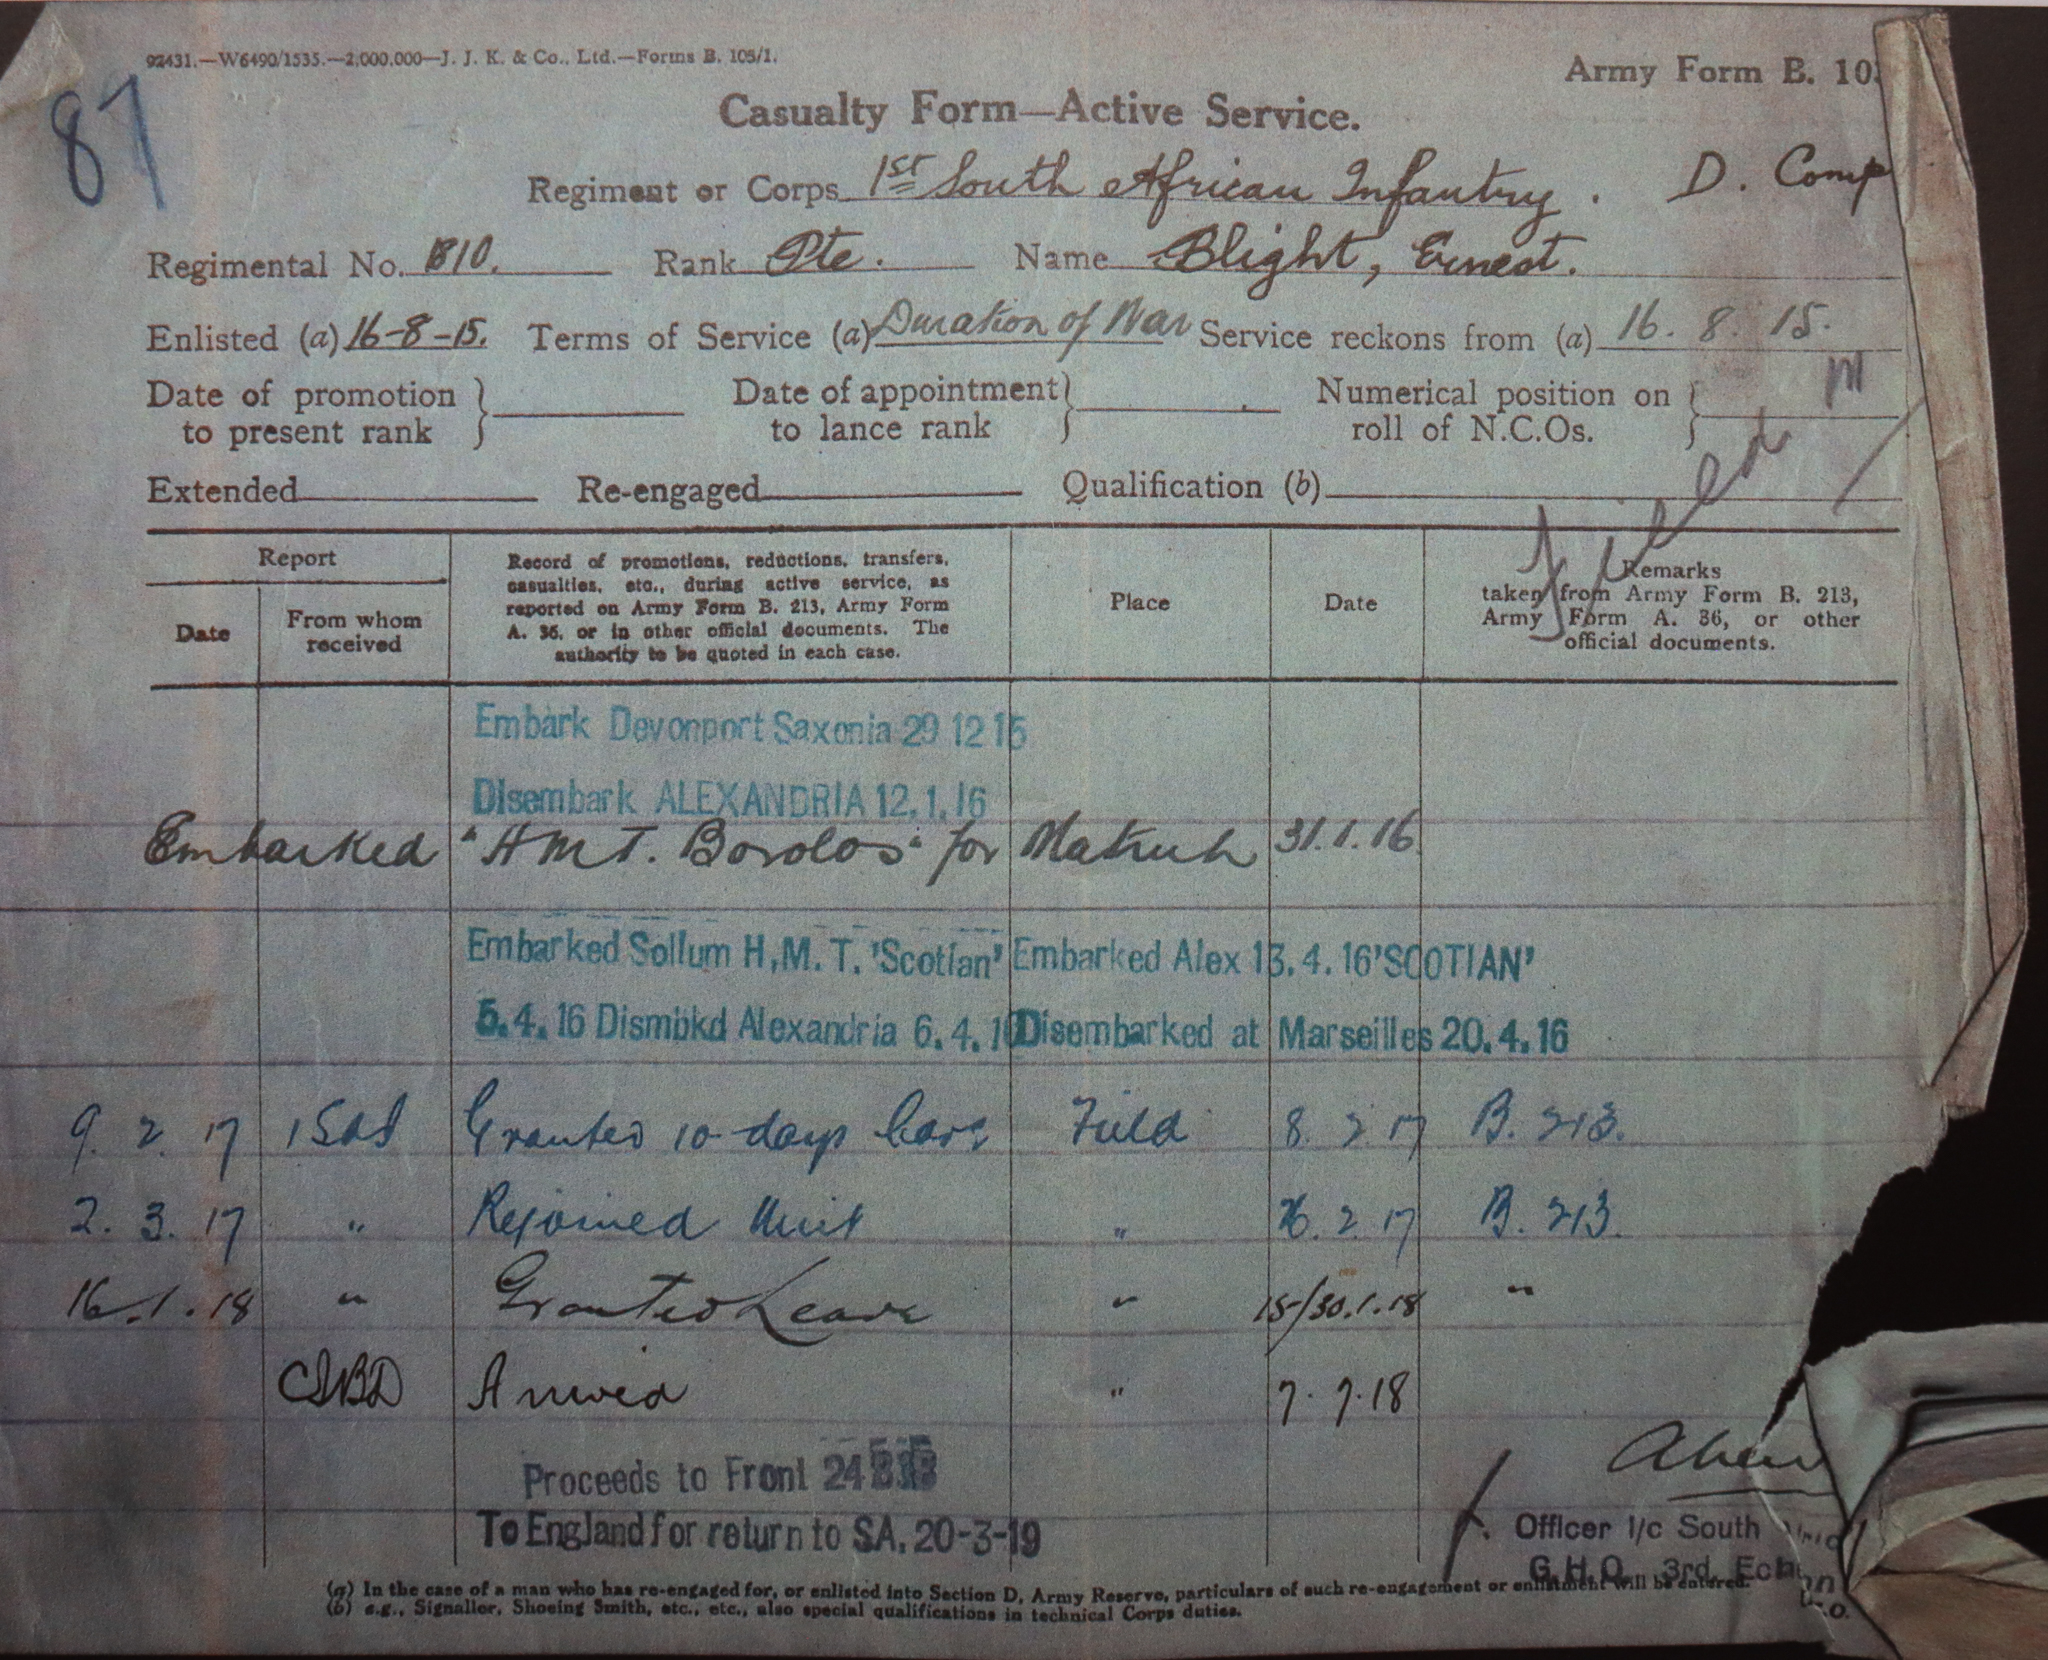 92431.—W6490/1535.—2,000,000—J. J. K. & Co., Ltd.—Forms B. 105/1.
Army Form B. 103
87
Casualty Form—Active Service.
Regiment or Corps 1st South African Infantry. D. Comp
Regimental No. 810. Rank Pte. Name Blight, Ernest.
Enlisted (a) 16-8-15. Terms of Service (a) Duration of War Service reckons from (a) 16. 8. 15.
Date of promotion to present rank } Date of appointment to lance rank } Numerical position on roll of N.C.Os. {
Extended Re-engaged Qualification (b)
Report
Date
From whom received
Record of promotions, reductions, transfers,
casualties, etc., during active service, as
reported on Army Form B. 213, Army Form
A. 36, or in other official documents. The
authority to be quoted in each case.
Place
Date
Remarks
taken from Army Form B. 213,
Army Form A. 36, or other
official documents.
Embark Devonport Saxonia 29 12 15
Disembark ALEXANDRIA 12.1.16
Embarked "HMT. Borolos" for Matruh 31.1.16
Embarked Sollum H,M.T. 'Scotian' Embarked Alex 13.4.16 'SCOTIAN'
5.4.16 Dismbkd Alexandria 6.4.16 Disembarked at Marseilles 20.4.16
9. 2. 17 1SAI Granted 10 days leave Field 8. 2 17 B. 213.
2. 3. 17 " Rejoined Unit " 26. 2 17 B. 213.
16.1.18 " Granted Leave " 15/30.1.18 "
Arrived " 7.7.18
Proceeds to Front 24
To England for return to SA. 20-3-19
f. Officer I/c South
G.H.Q. 3rd. Echelon
(a) In the case of a man who has re-engaged for, or enlisted into Section D, Army Reserve, particulars of such re-engagement or enlistment will be entered.
(b) e.g., Signaller, Shoeing Smith, etc., etc., also special qualifications in technical Corps duties.